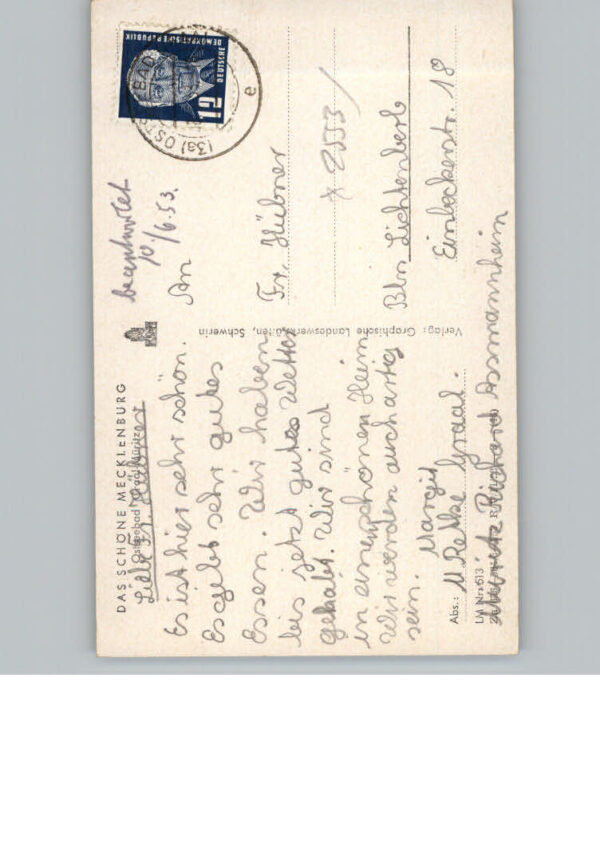 DAS SCHÖNE MECKLENBURG
Ostseebad Graal-Müritz
Liebe Fr. Hübner
Es ist hier sehr schön.
Es gibt sehr gutes
Essen. Wir haben
bis jetzt gutes Wetter
gehabt. Wir sind
in einen schönen Heim
Wir werden auch artig
sein. Margit
Abs.: M. Retke Graal-
Müritz Richard Assmannheim
LM Nr. 613
Verlag: Graphische Landeswerkstätten, Schwerin
beantwortet
10./6.53.
DEUTSCHE
DEMOKRATISCHE REPUBLIK
12
(3a) OSTSEEBAD
e
An
Fr. Hübner
x 2553/
Bln Lichtenberb
Einbeckerstr. 18